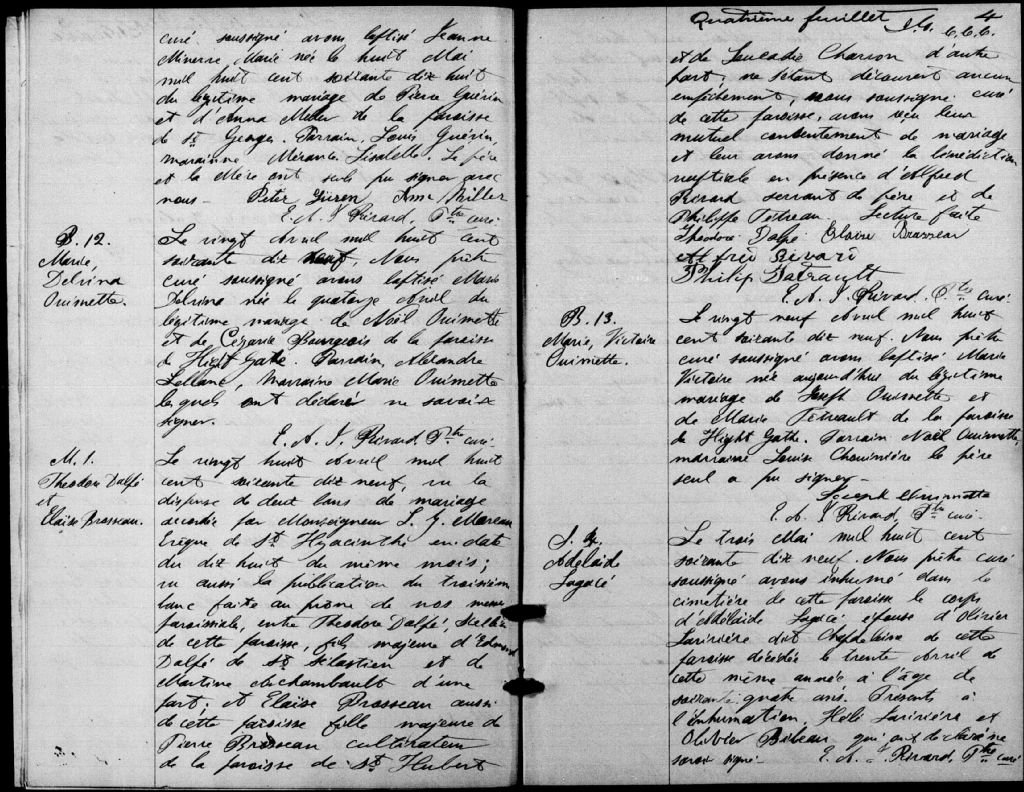 curé soussigné avons baptisé Jeanne
Minerve, Marie née le huit Mai
mil huit cent soixante dix huit
du légitime mariage de Pierre Guérin
et d'Anna Miller de la paroisse
de St Georges. Parrain, Louis Guérin,
marainne, Le père
et la Mère ont seuls pu signer avec
nous - Peter Ann Miller
E. A. J. Rivard, Ptre curé.
B. 12.
Marie
Delvina
Ouimette.
Le vingt Avril mil huit cent
soixante dix neuf, Nous prêtre
curé soussigné avons baptisé Marie
Delvina née le quatorze Avril du
légitime mariage de Noël Ouimette
et de Césarie Bourgeois de la paroisse
de Hight Gathe. Parrain, Alexandre
Leblanc, Marraine Marie Ouimette
lesquels ont déclaré ne savoir
signer.
E. A. J. Rivard Ptre curé.
M. 1.
Theodore Dalpé
et
Elaïse Brosseau.
Le vingt huit Avril mil huit
cent soixante dix neuf, vu la
dispense de deux bans de mariage
accordée par Monseigneur L. Z. Moreau
Evêque de St Hyacinthe en date
du dix huit du même mois;
vu aussi la publication du troisième
banc faite au prône de nos messe
paroissiale, entre Theodore Dalpé,
de cette paroisse, fils majeure d'Edouard
Dalpé de St Sébastien et de
Martine Archambault d'une
part; et Elaïse Brosseau aussi
de cette paroisse fille majeure de
Pierre Brosseau cultivateur
de la paroisse de St Hubert
Quatrième feuillet 4
et de Leucadie Charron d'autre
part; ne s'étant découvert aucun
empêchement, nous soussigné curé
de cette paroisse, avons reçu leur
mutuel consentement de mariage
et leur avons donné la bénédiction
nuptiale en présence d'Alfred
Rivard servant de père et de
Philippe Tétreau. Lecture faite
Théodore Dalpé Elaise Brasseau
Alfred Rivard
Philip Tatrault
E. A. J. Rivard, Ptre curé.
B. 13.
Marie, Victoire
Ouimette.
Le vingt neuf Avril mil huit
cent soixante dix neuf. Nous prêtre
curé soussigné avons baptisé Marie
Victoire née aujourd'hui du légitime
mariage de Joseph Ouimette et
de Marie Tétrault de la paroisse
de Hight Gathe. Parrain Noël Ouimette,
marraine Louise Chouinière le père
seul a pu signer -
Joseph Ouimette
E. A. J Rivard, Ptre curé.
S.
Adélaïde
Lagacé
Le trois Mai mil huit cent
soixante dix neuf. Nous prêtre curé
soussigné avons inhumé dans le
cimetière de cette paroisse le corps
d'Adélaïde Lagacé épouse d'Olivier
Larivière dit de cette
paroisse décédée le trente Avril de
cette même année à l'âge de
soixante quatre ans. Présents à
l'inhumation, Héli Larivière et
Olivier Bileau, qui ont déclaré ne
savoir signé. E. A. J. Rivard, Ptre curé